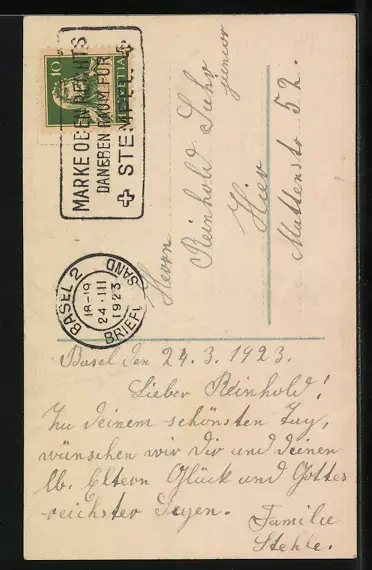 10
HELVETIA
MARKE OBEN RECHTS
DANEBEN RAUM FÜR
STEMPEL
BASEL 2
18-19
24.III
1923
BRIEFVERSAND
Herrn
Reinhold Suhr
junior
Hier
Mattenstr 52.
Basel den 24.3.1923.
Lieber Reinhold!
Zu deinem schönsten Tag,
wünschen wir Dir und deinen
lb. Eltern Glück und Gottes
reichster Segen.
Familie
Stehle.